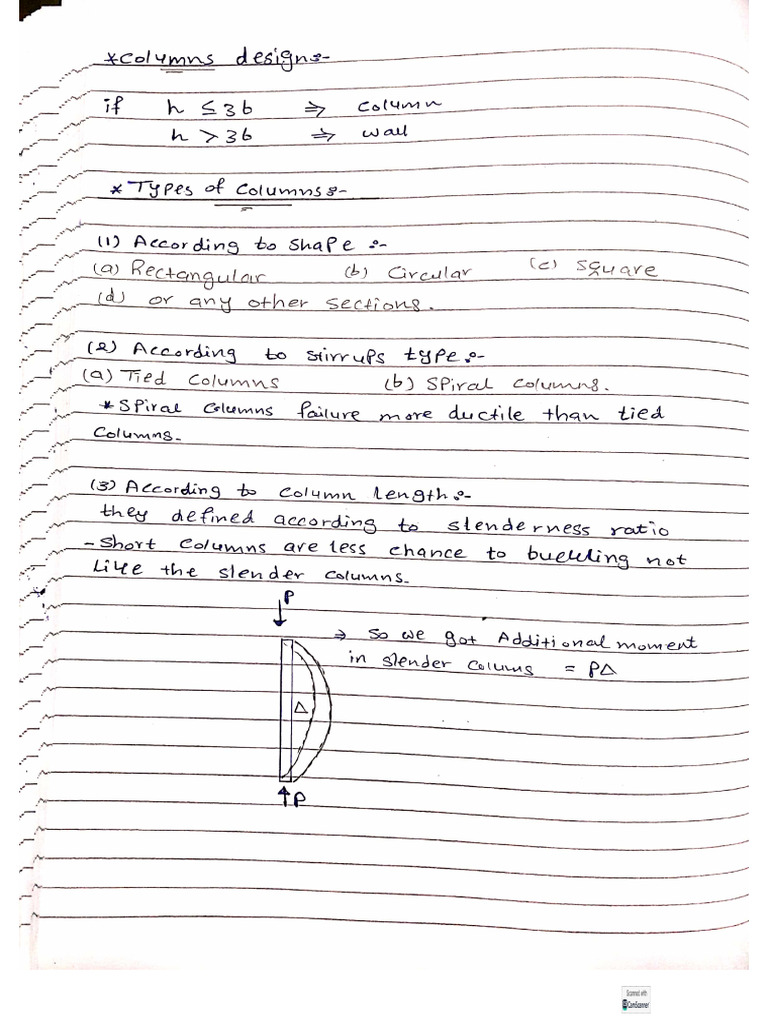 * Columns design:-
if h ≤ 3b ⇒ column
h > 3b ⇒ wall
* Types of columns:-
(1) According to shape :-
(a) Rectangular (b) Circular (c) square
(d) or any other sections.
(2) According to stirrups type:-
(a) Tied columns (b) spiral columns.
* spiral columns failure more ductile than tied
columns.
(3) According to column length:-
they defined according to slenderness ratio
- short columns are less chance to buckling not
like the slender columns.
P
⇒ so we got Additional moment
in slender colums = PΔ
Δ
P
Scanned with
CS CamScanner